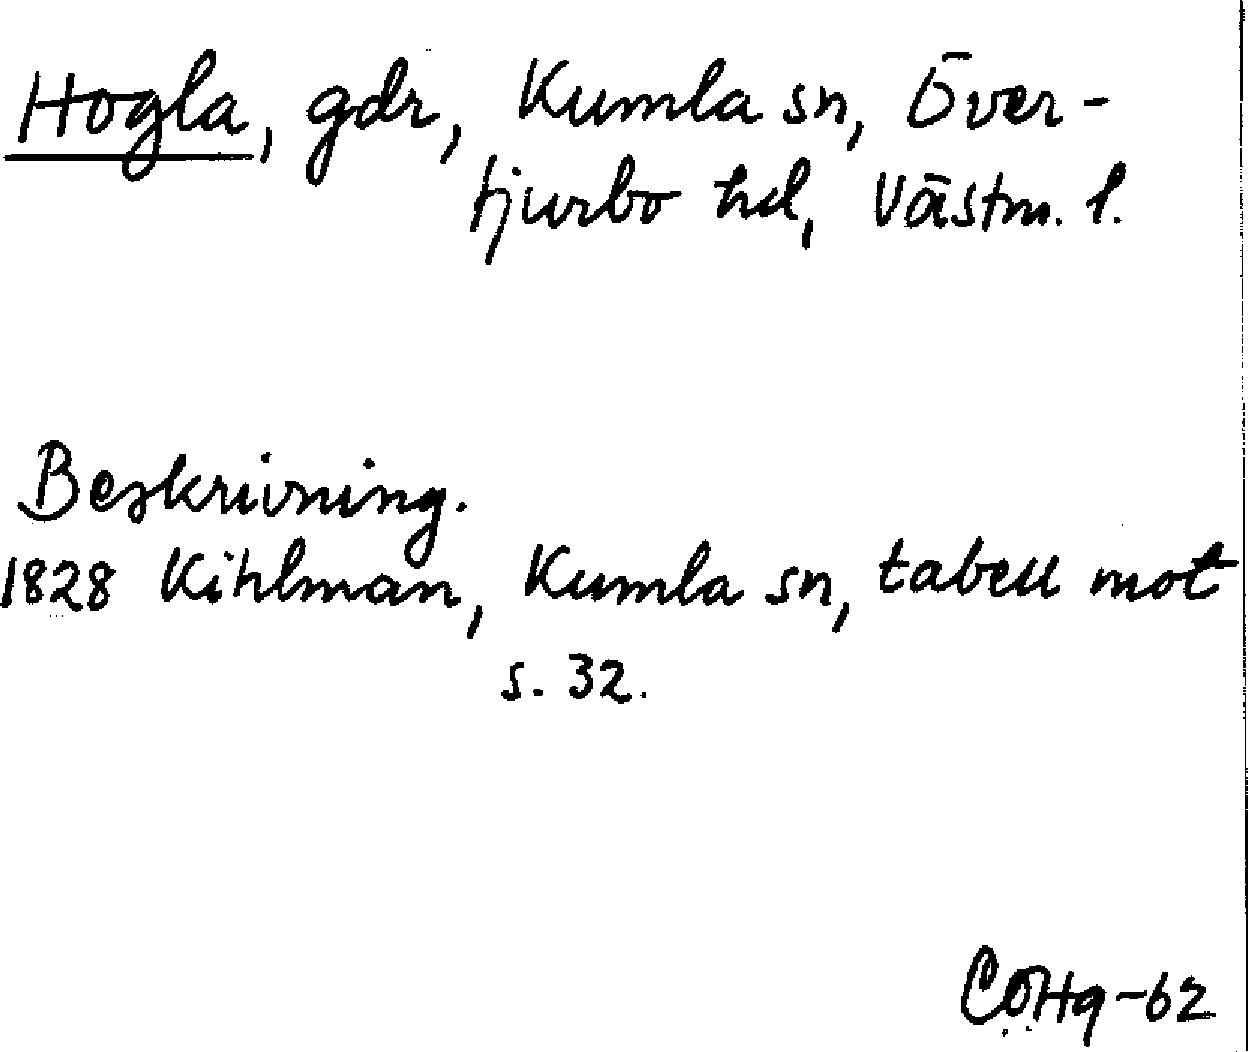 Hogla, gdr, Kumla sn, Över-
tjurbo hd, Västm. l.
Beskrivning.
1828 Kihlman, Kumla sn, tabell mot
s. 32.
COHq-62